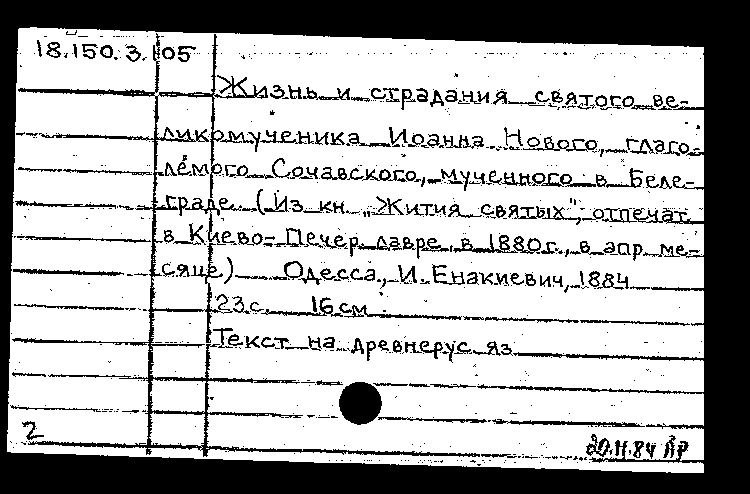 18.150.3.105
Жизнь и страдания святого ве-
ликомученика Иоанна Нового, глаго-
лемого Сочавского, мученного в Беле-
граде. (Из кн. „Жития святых", отпечат.
в Киево-Печер. лавре, в 1880г., в апр. ме-
сяце) Одесса, И. Енакиевич, 1884
23с. 16см.
Текст на древнерус. яз.
2
20.11.84